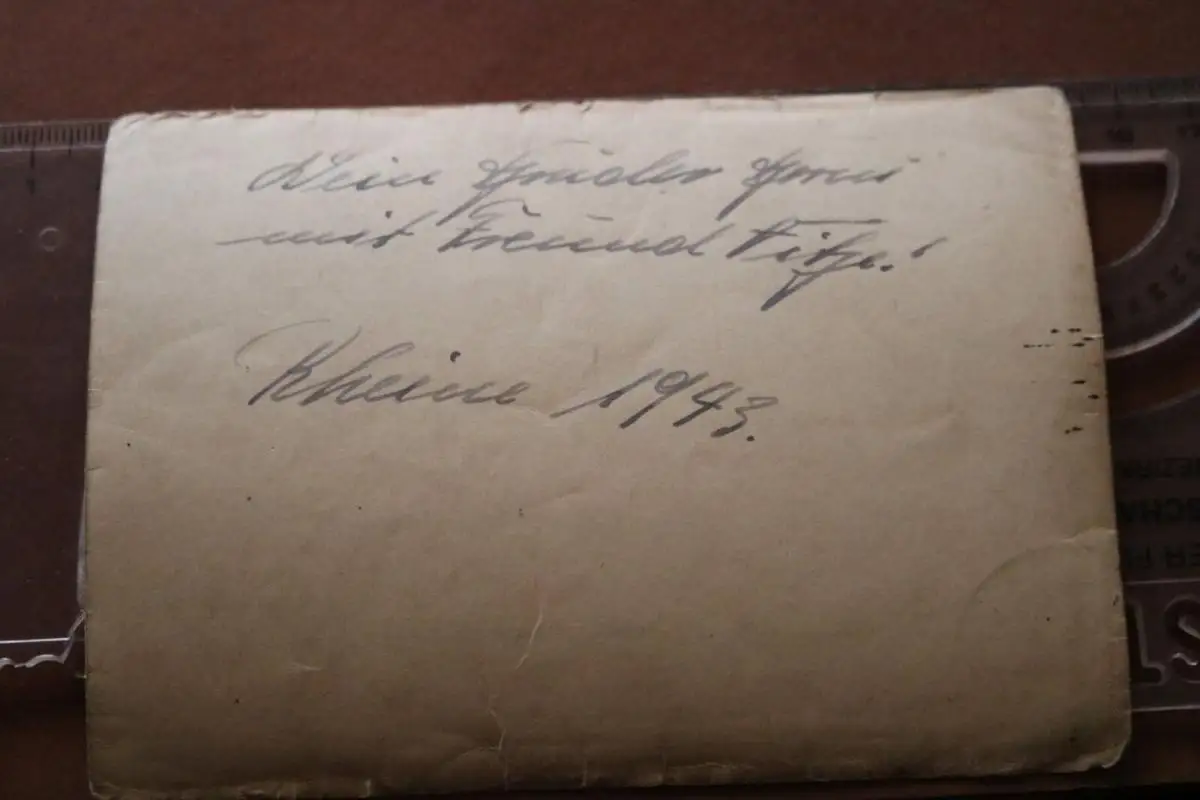 Dein Bruder
mit Freund Fitze!
Rheine 1943.